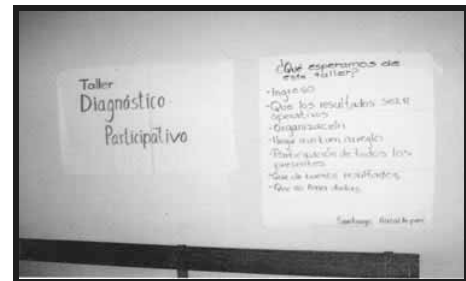 Taller
Diagnóstico
Participativo
¿Qué esperamos de
este taller?
-Ingreso
-Que los resultados sean
operativos
-Organización
-Llegar a un buen arreglo
Participación de todos los
presentes
-Que de buenos resultados
-Que no haya dudas
Santiago